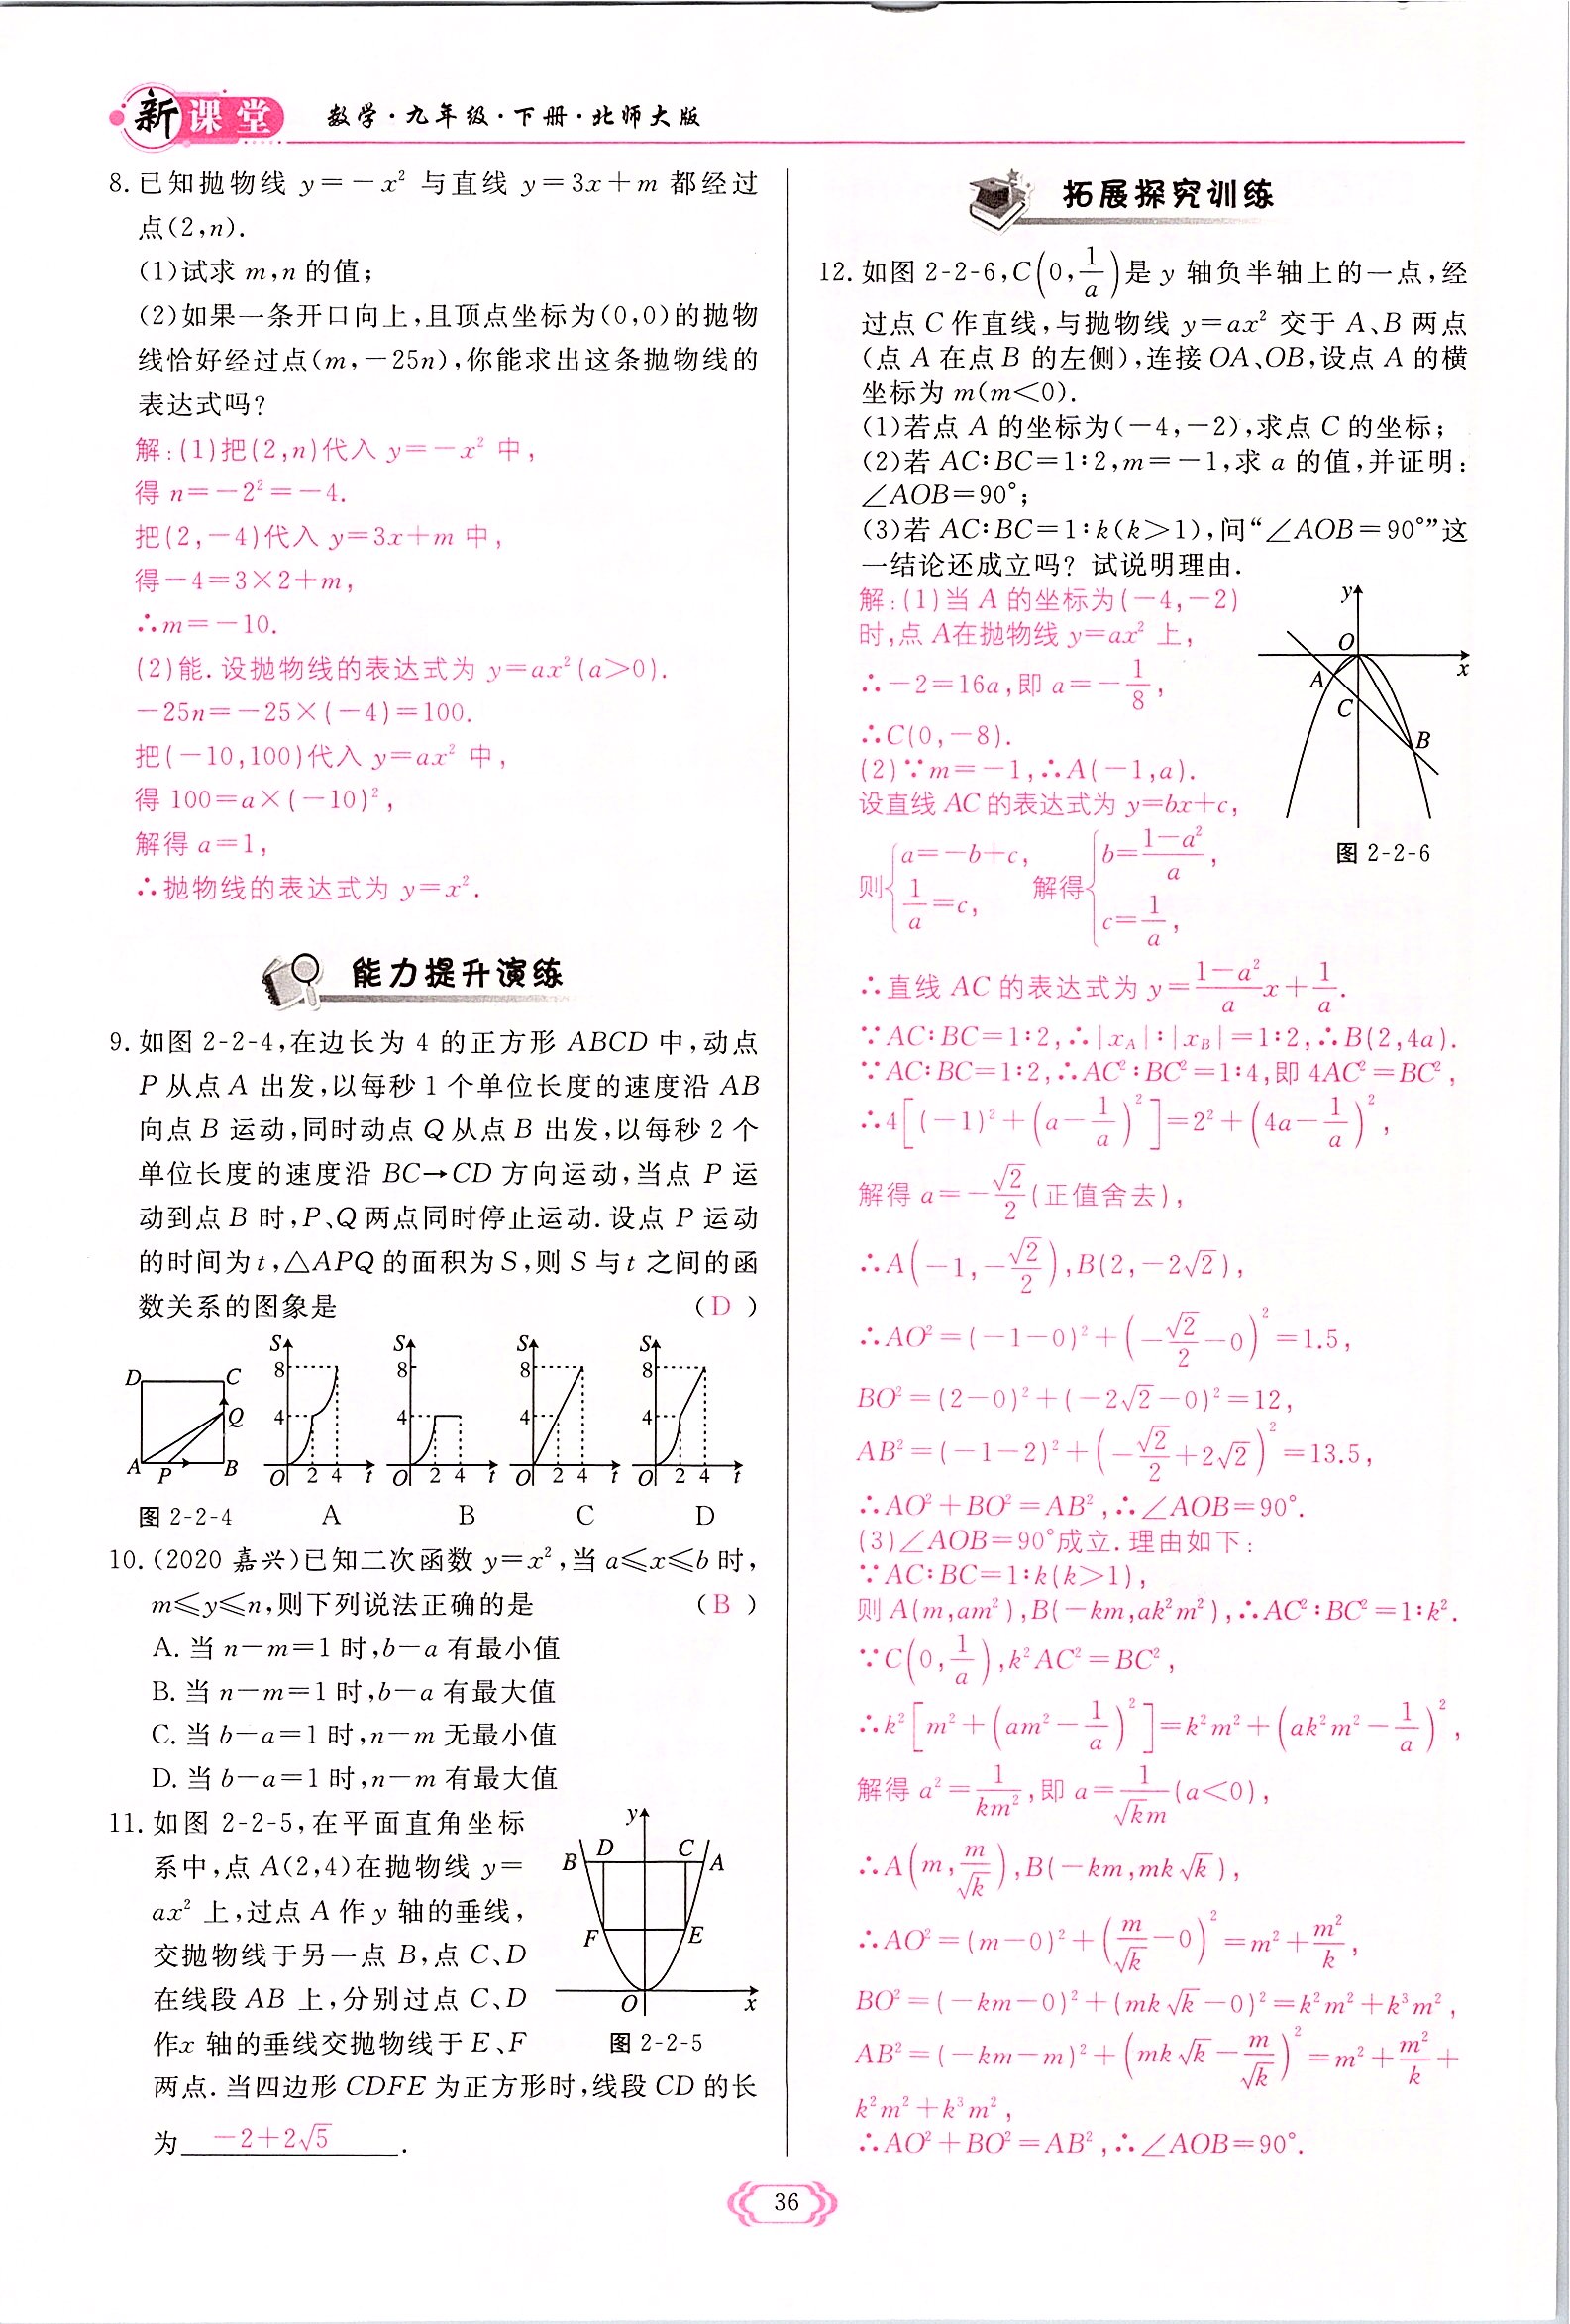 新课堂 数学·九年级·下册·北师大版
8.已知抛物线 y=-x² 与直线 y=3x+m 都经过
点(2,n).
(1)试求 m,n 的值;
(2)如果一条开口向上,且顶点坐标为(0,0)的抛物
线恰好经过点(m,-25n),你能求出这条抛物线的
表达式吗?
解:(1)把(2,n)代入 y=-x² 中,
得 n=-2²=-4.
把(2,-4)代入 y=3x+m 中,
得-4=3×2+m,
∴m=-10.
(2)能.设抛物线的表达式为 y=ax²(a>0).
-25n=-25×(-4)=100.
把(-10,100)代入 y=ax² 中,
得 100=a×(-10)²,
解得 a=1,
∴抛物线的表达式为 y=x².
能力提升演练
9.如图 2-2-4,在边长为 4 的正方形 ABCD 中,动点
P 从点 A 出发,以每秒 1 个单位长度的速度沿 AB
向点 B 运动,同时动点 Q 从点 B 出发,以每秒 2 个
单位长度的速度沿 BC→CD 方向运动,当点 P 运
动到点 B 时,P、Q 两点同时停止运动.设点 P 运动
的时间为 t,△APQ 的面积为 S,则 S 与 t 之间的函
数关系的图象是 (D)
D C Q A P B
S 8 4 O 2 4 t
S 8 4 O 2 4 t
S 8 4 O 2 4 t
S 8 4 O 2 4 t
图 2-2-4 A B C D
10.(2020 嘉兴)已知二次函数 y=x²,当 a≤x≤b 时,
m≤y≤n,则下列说法正确的是 (B)
A. 当 n-m=1 时,b-a 有最小值
B. 当 n-m=1 时,b-a 有最大值
C. 当 b-a=1 时,n-m 无最小值
D. 当 b-a=1 时,n-m 有最大值
11.如图 2-2-5,在平面直角坐标
系中,点 A(2,4)在抛物线 y=
ax² 上,过点 A 作 y 轴的垂线,
交抛物线于另一点 B,点 C、D
在线段 AB 上,分别过点 C、D
作x 轴的垂线交抛物线于 E、F
两点.当四边形 CDFE 为正方形时,线段 CD 的长
为 -2+2√5 .
y B D C A F E O x
图 2-2-5
拓展探究训练
12.如图 2-2-6,C(0,1/a)是 y 轴负半轴上的一点,经
过点 C 作直线,与抛物线 y=ax² 交于 A、B 两点
(点 A 在点 B 的左侧),连接 OA、OB,设点 A 的横
坐标为 m(m<0).
(1)若点 A 的坐标为(-4,-2),求点 C 的坐标;
(2)若 AC∶BC=1∶2,m=-1,求 a 的值,并证明:
∠AOB=90°;
(3)若 AC∶BC=1∶k(k>1),问“∠AOB=90°”这
一结论还成立吗? 试说明理由.
解:(1)当 A 的坐标为(-4,-2)
时,点 A在抛物线 y=ax² 上,
∴-2=16a,即 a=-1/8,
∴C(0,-8).
(2)∵m=-1,∴A(-1,a).
设直线 AC 的表达式为 y=bx+c,
则{a=-b+c, 1/a=c, 解得{b=(1-a²)/a, c=1/a,
y O x A C B
图 2-2-6
∴直线 AC 的表达式为 y=(1-a²)/a x+1/a.
∵AC∶BC=1∶2,∴|xA|∶|xB|=1∶2,∴B(2,4a).
∵AC∶BC=1∶2,∴AC²∶BC²=1∶4,即 4AC²=BC²,
∴4[(-1)²+(a-1/a)²]=2²+(4a-1/a)²,
解得 a=-√2/2(正值舍去),
∴A(-1,-√2/2),B(2,-2√2),
∴AO²=(-1-0)²+(-√2/2-0)²=1.5,
BO²=(2-0)²+(-2√2-0)²=12,
AB²=(-1-2)²+(-√2/2+2√2)²=13.5,
∴AO²+BO²=AB²,∴∠AOB=90°.
(3)∠AOB=90°成立.理由如下:
∵AC∶BC=1∶k(k>1),
则 A(m,am²),B(-km,ak²m²),∴AC²∶BC²=1∶k².
∵C(0,1/a),k²AC²=BC²,
∴k²[m²+(am²-1/a)²]=k²m²+(ak²m²-1/a)²,
解得 a²=1/km²,即 a=1/(√k m)(a<0),
∴A(m,m/√k),B(-km,mk√k),
∴AO²=(m-0)²+(m/√k-0)²=m²+m²/k,
BO²=(-km-0)²+(mk√k-0)²=k²m²+k³m²,
AB²=(-km-m)²+(mk√k-m/√k)²=m²+m²/k+
k²m²+k³m²,
∴AO²+BO²=AB²,∴∠AOB=90°.
36